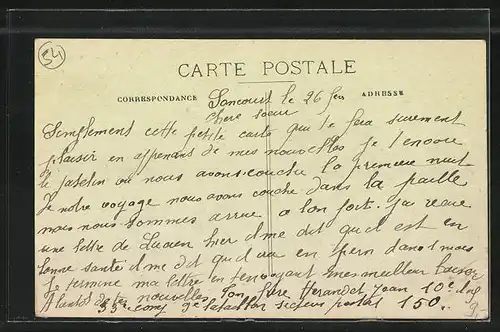 54
CARTE POSTALE
CORRESPONDANCE ADRESSE
Soncourt le 26 fev
chere soeur
Simplement cette petite carte qui te fera surement
plaisir en apprenans de mes nouvelles je t'envoie
le patelin ou nous avons couche la premiere nuit
de notre voyage nous avons couche dans la paille
mais nous sommes arrive a bon fort. j'ai recue
une lettre de Lucien hier il me dit quil est en
bonne santé il me dit quil va en perm dans 1 mois
je termine ma lettre en tenvoyant mes meilleur baiser
A bientot de tes nouvelles Ton frère Jean 10e
33e comp 9e bataillon secteur postal 150.